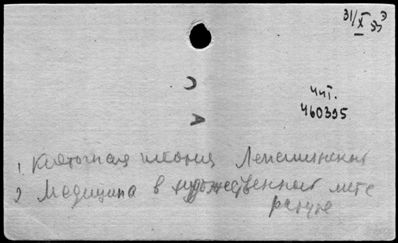 31/X 53 э
чит.
460395
С
А
1. Клеточная теория Лепешинской
2 Медицина в художественной лите
ратуре